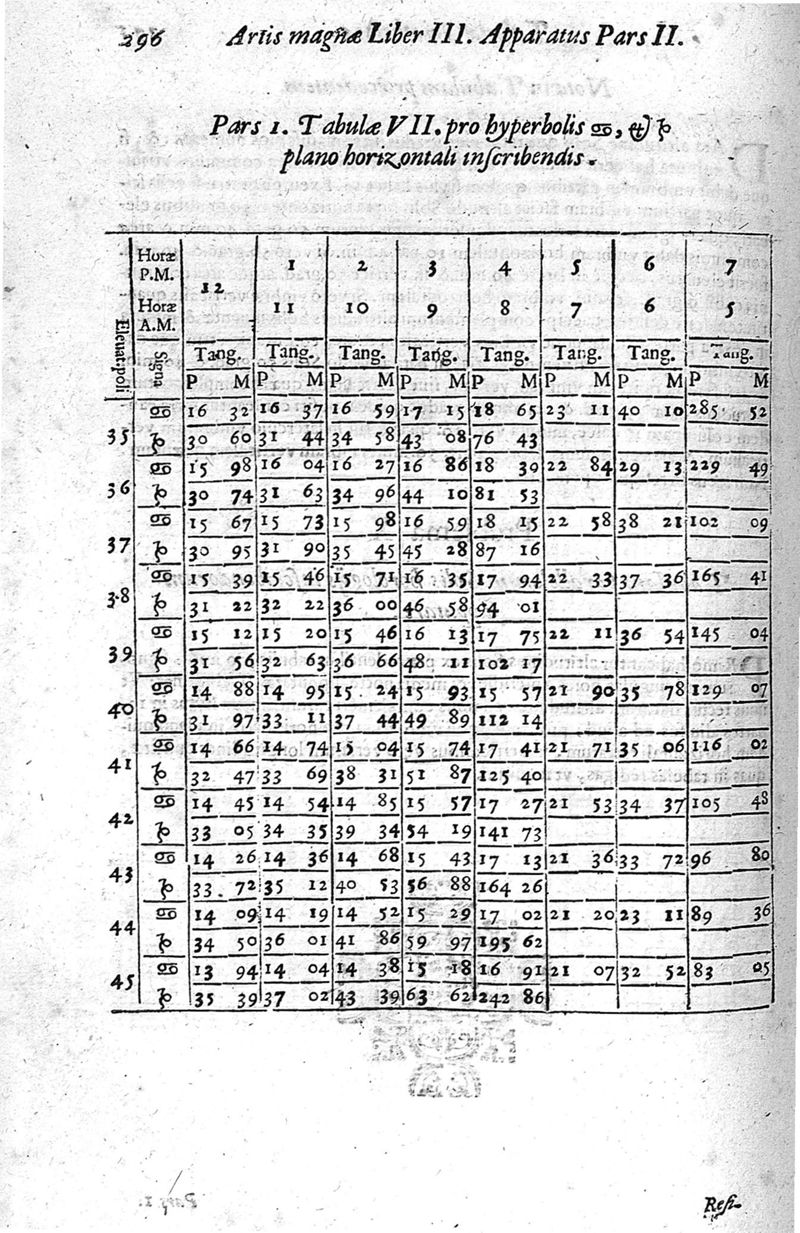 296 Artis magnæ Liber III. Apparatus Pars II.
Pars 1. Tabulæ VII. pro hyperbolis ♋, & ♑
plano horizontali inſcribendis.
Elevat. poli
Signa
Horæ P.M. 12 1 2 3 4 5 6 7
Horæ A.M. 11 10 9 8 7 6 5
Tang. Tang. Tang. Tang. Tang. Tang. Tang. Tang.
P M P M P M P M P M P M P M P M
35 ♋ 16 32 16 37 16 59 17 15 18 65 23 11 40 10 285 52
♑ 30 60 31 44 34 58 43 08 76 43
36 ♋ 15 98 16 04 16 27 16 86 18 39 22 84 29 13 229 49
♑ 30 74 31 63 34 96 44 10 81 53
37 ♋ 15 67 15 73 15 98 16 59 18 15 22 58 38 21 102 09
♑ 30 95 31 90 35 45 45 28 87 16
38 ♋ 15 39 15 46 15 71 16 35 17 94 22 33 37 36 165 41
♑ 31 22 32 22 36 00 46 58 94 01
39 ♋ 15 12 15 20 15 46 16 13 17 75 22 11 36 54 145 04
♑ 31 56 32 63 36 66 48 11 102 17
40 ♋ 14 88 14 95 15 24 15 93 15 57 21 90 35 78 129 07
♑ 31 97 33 11 37 44 49 89 112 14
41 ♋ 14 66 14 74 15 04 15 74 17 41 21 71 35 06 116 02
♑ 32 47 33 69 38 31 51 87 125 40
42 ♋ 14 45 14 54 14 85 15 57 17 27 21 53 34 37 105 48
♑ 33 05 34 35 39 34 54 19 141 73
43 ♋ 14 26 14 36 14 68 15 43 17 13 21 36 33 72 96 80
♑ 33 72 35 12 40 53 56 88 164 26
44 ♋ 14 09 14 19 14 52 15 29 17 02 21 20 23 11 89 36
♑ 34 50 36 01 41 86 59 97 195 62
45 ♋ 13 94 14 04 14 38 15 18 16 91 21 07 32 52 83 05
♑ 35 39 37 02 43 39 63 62 242 86
Reſi-